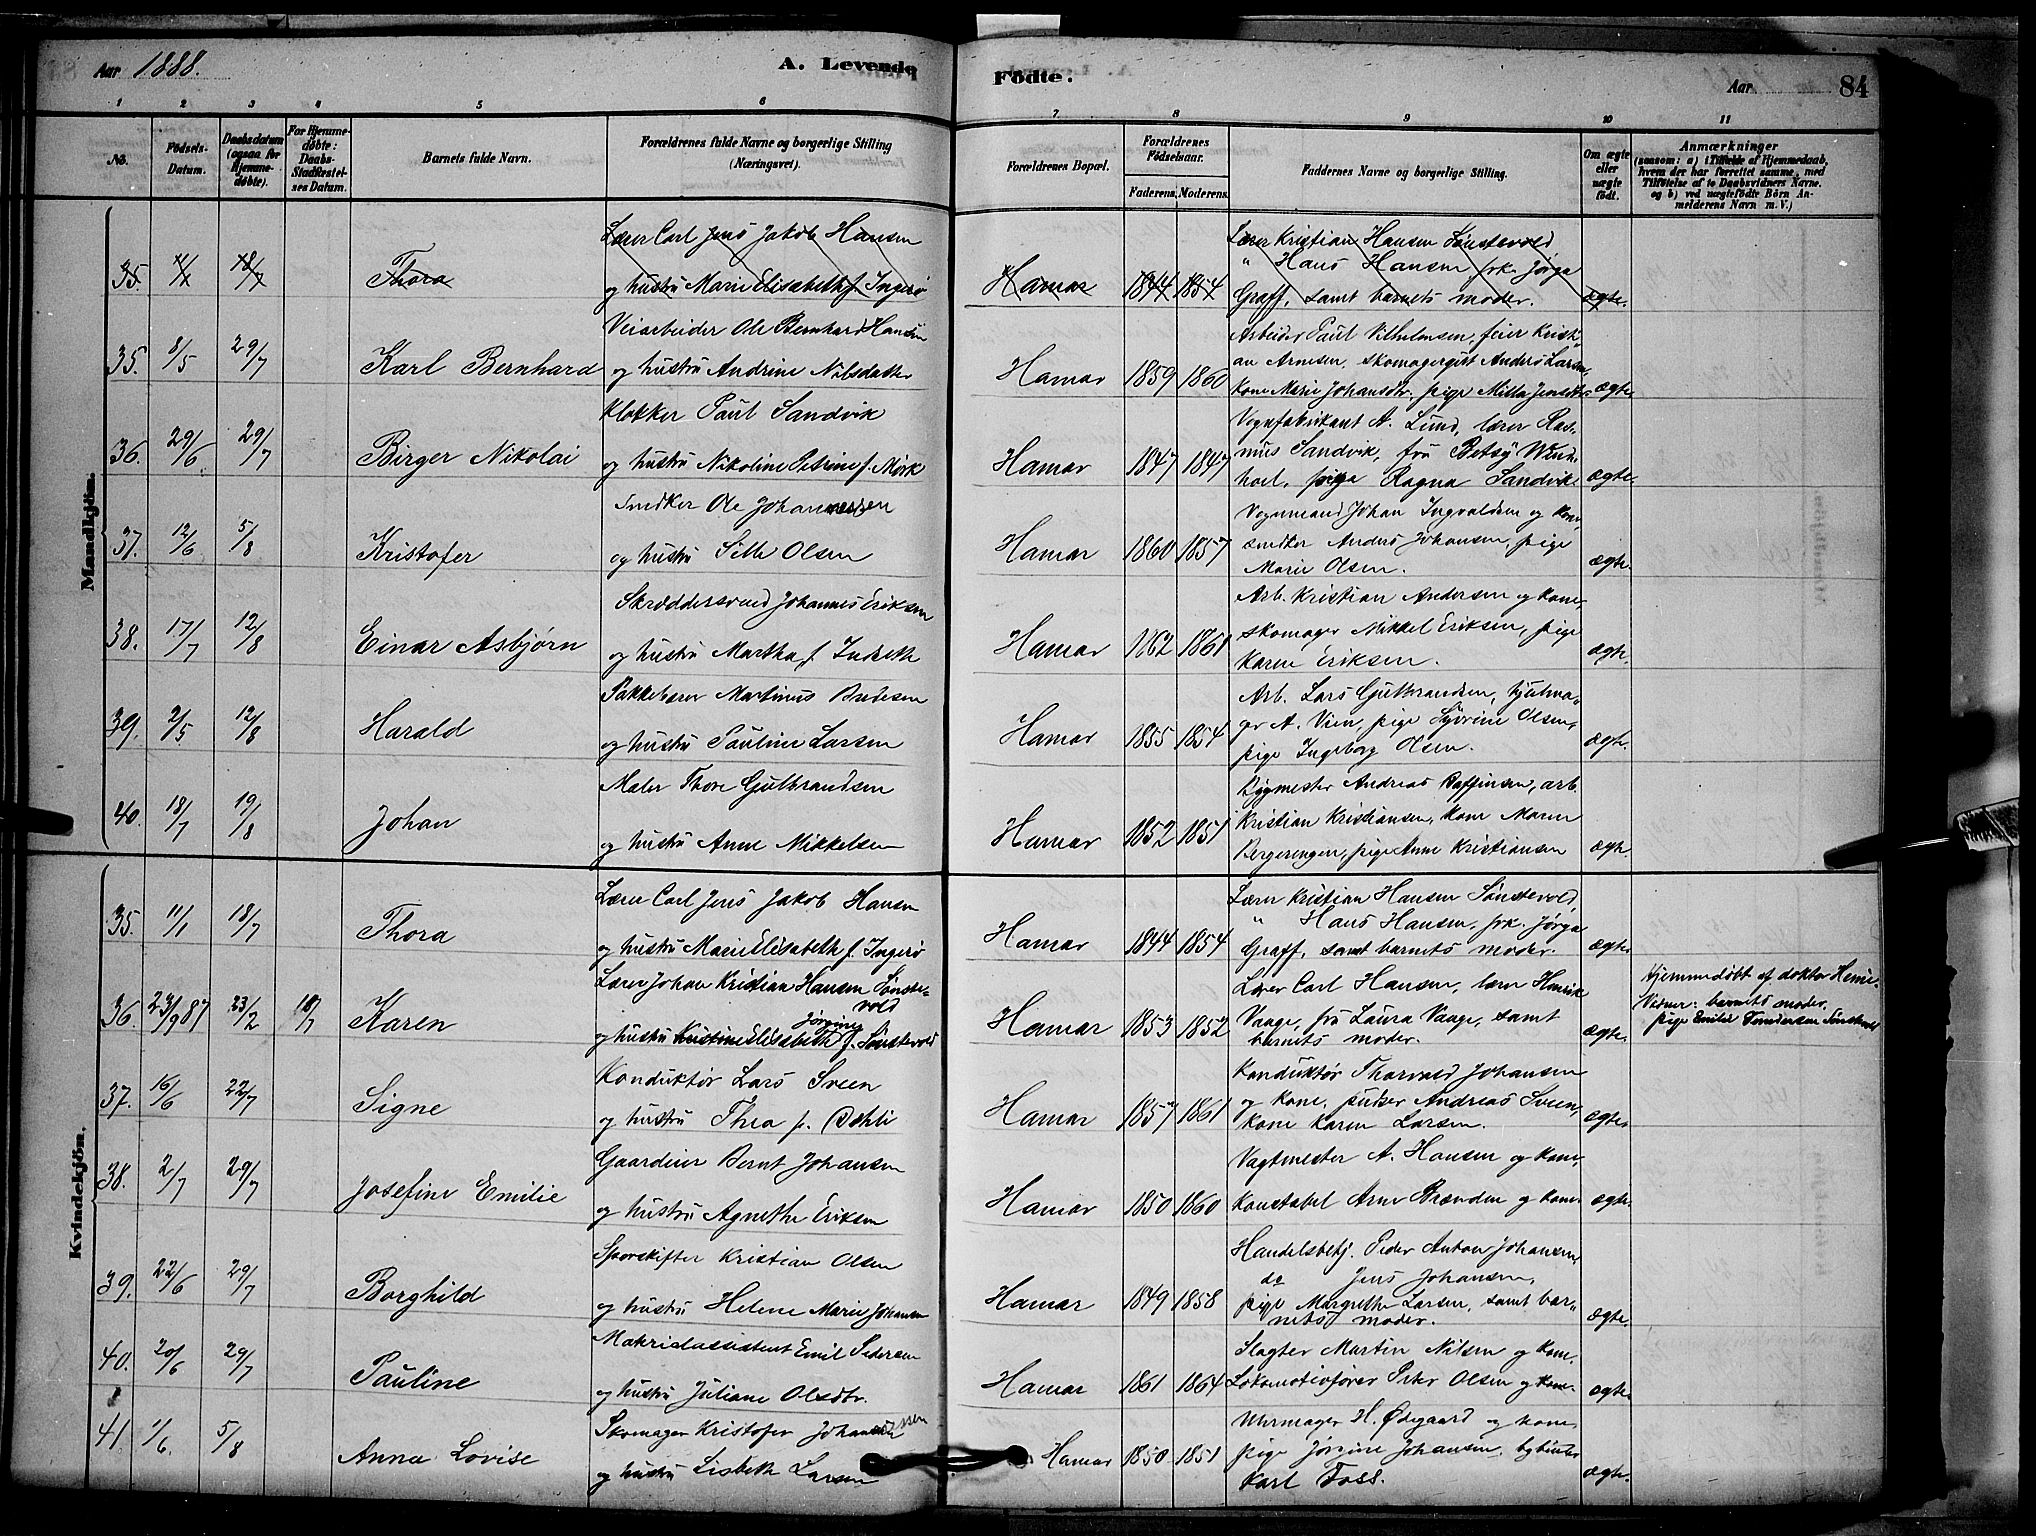 Aar 1888.
A. Levende
Födte.
Aar
84
1 2 3 4 5 6 7 8 9 10 11
No.
Födsels-Datum.
Daabsdatum (ogsaa for Hjemme-døbte).
For Hjemme-døbte: Daabs-Stadfæstel-ses Datum.
Barnets fulde Navn.
Forældrenes fulde Navne og borgerlige Stilling (Næringsvei).
Forældrenes Bopæl.
Forældrenes Födselsaar.
Faderens. Moderens.
Faddernes Navne og borgerlige Stilling.
Om ægte eller uægte födt.
Anmærkninger
(saasom: a) i Tilfælde af Hjemmedaab,
hvem der har forrettet samme, med
Tilföielse af to Daabsvidners Navne,
og b) ved uægtefödte Börn An-
melderens Navn m. V.)
Mandkjön.
Lærer Carl Jens Jakob Hansen
Lærer Kristian Hansen Sønstevold
35. 11/1 18/7 Thora og hustru Marie Elisabeth f. Ingerø Hamar 1844 1854 " Hans Hansen, frk. Jørga
Graff, samt barnets moder. ægte.
Veiarbeider Ole Bernhard Hansen
Arbeider Paul Vilhelmsen, feier Kristi-
35. 8/5 29/7 Karl Bernhard og hustru Andrine Nilsdatter Hamar 1859 1860 an Arnesen, skomagergut Anders Larsen,
kone Marie Johansdtr. pige Milla Jensdtr. ægte.
Klokker Paul Sandvik
Vognfabrikant A. Lund, lærer Ras-
36. 29/6 29/7 Birger Nikolai og hustru Nikoline Petrine f. Mørk Hamar 1847 1847 mus Sandvik, fru Betsy
pige Ragna Sandvik ægte.
Snedker Ole Johannessen
Vognmand Johan Ingvaldsen og kone,
37. 12/6 5/8 Kristofer og hustru Sille Olsen Hamar 1860 1857 snedker Anders Johansen, pige
Marie Olsen. ægte.
Skræddersvend Johannes Eriksen
Arb. Kristian Andersen og kone,
38. 17/7 12/8 Einar Asbjørn og hustru Martha f. Hamar 1862 1861 skomager Mikkel Eriksen, pige
Karen Eriksen. ægte.
Pakkebærer Martinus Bredesen
Arb. Lars Gulbrandsen, hjulma-
39. 2/5 12/8 Harald og hustru Pauline Larsen Hamar 1855 1854 ger A. Vien, pige Syverine Olsen,
pige Ingeborg Olsen. ægte.
Maler Thore Gulbrandsen
Bygmester Andreas arb.
40. 18/7 19/8 Johan og hustru Anne Mikkelsen Hamar 1852 1851 Kristian Kristiansen, kone Maren
Bergerengen, pige Anne Kristiansen ægte.
Kvindekjön.
Lærer Carl Jens Jakob Hansen
Lærer Kristian Hansen Sønstevold,
35. 11/1 18/7 Thora og hustru Marie Elisabeth f. Ingerø Hamar 1844 1854 " Hans Hansen, frk. Jørga
Graff, samt barnets moder. ægte.
Lærer Johan Kristian Hansen Sønste-
vold
Lærer Carl Hansen, lærer Henrik
Hjemmedøbt af doktor
36. 23/9 87 23/2 18/7 Karen og hustru Kristine Elisabeth Jørgine f. Sønstevold Hamar 1853 1852 Vaage, fru Laura Vaage, samt
barnets moder. ægte.
Vidner: barnets moder,
pige Emilie Sønstevold
Konduktør Lars Sveen
Konduktør Thorvald Johansen
37. 16/6 22/7 Signe og hustru Thea f. Dehli Hamar 1857 1861 og kone, pudser Andreas Sveen,
kone Karen Larsen. ægte.
Gaardeier Bernt Johansen
Vagtmester A. Hansen og kone,
38. 2/7 29/7 Josefine Emilie og hustru Agnethe Eriksen Hamar 1850 1860 Konstabel Arne Brænden og kone ægte.
Sporskifter Kristian Olsen
Handelsbetj. Peder Anton Johansen
39. 22/6 29/7 Borghild og hustru Helene Marie Johansen Hamar 1849 1858 do Jens Johansen,
pige Margrethe Larsen, samt bar-
nets moder. ægte.
Materialassistent Emil Pedersen
Slagter Martin Nilsen og kone,
40. 20/6 29/7 Pauline og hustru Juliane Olsdtr. Hamar 1861 1864 Lokomotivfører Peter Olsen og kone ægte.
Skomager Kristofer Johannessen
Uhrmager H. Ødegaard og kone,
41. 1/6. 5/8 Anna Lovise og hustru Lisbeth Larsen Hamar 1850 1851 pige Jørgine Johansen,
Karl Foss. ægte.